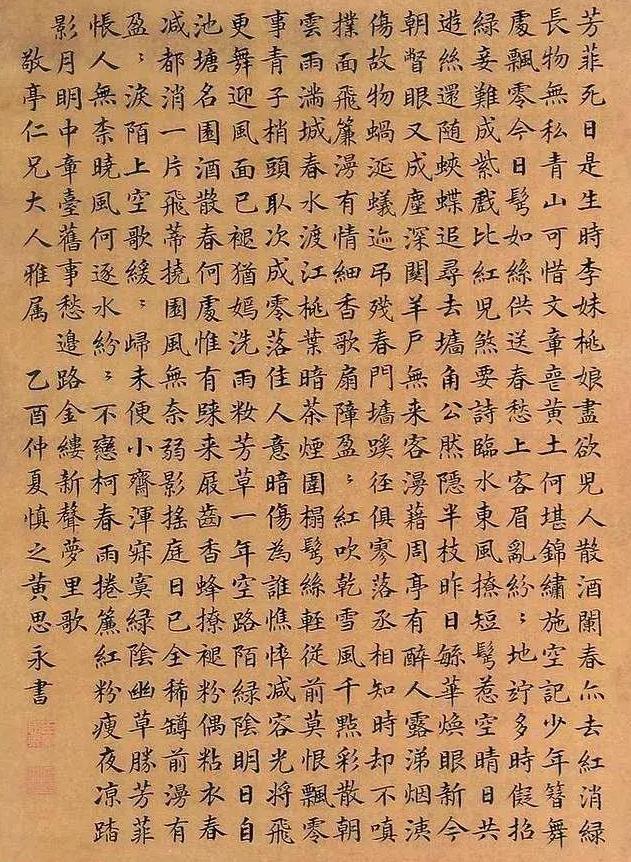 芳菲死日是生時李妹桃娘盡欲兒人散酒闌春亦去紅消綠
長物無私青山可惜文章喪黃土何堪錦繡施空記少年簪舞
處飄零今日鬢如絲供送春愁上客眉亂紛〻地竚多時儗招
綠妾難成紫戲比紅兒煞要詩臨水東風撩短鬢惹空晴日共
遊絲還随蛺蝶追尋去墻角公然隱半枝昨日緐華煥眼新今
朝瞥眼又成塵深閞羊戶無来客漫藉周亭有醉人露涕烟洟
傷故物蝸涎蟻迹弔殘春門墻蹊徑俱寥落丞相知時却不嗔
撲面飛簾漫有情細香歌扇障盈〻紅吹乾雪風千點彩散朝
雲雨滿城春水渡江桃葉暗茶煙圍榻鬢絲輕従前莫恨飄零
事青子梢頭取次成零落佳人意暗傷為誰憔悴減容光將飛
更舞迎風面已褪猶嫣洗雨妝芳草一年空路陌綠陰明日自
池塘名園酒散春何處惟有踈来屐齒香蜂撩褪粉偶粘衣春
減都消一片飛蒂撓園風無奈弱影搖庭日已全稀罇前漫有
盈〻淚陌上空歌緩〻歸未便小齋渾寂寞綠陰幽草勝芳菲
悵人無柰曉風何逐水紛〻不戀柯春雨捲簾紅粉瘦夜凉踏
影月明中章臺舊事愁邉路金縷新聲夢里歌
敬亭仁兄大人雅属 乙酉仲夏慎之黃思永書